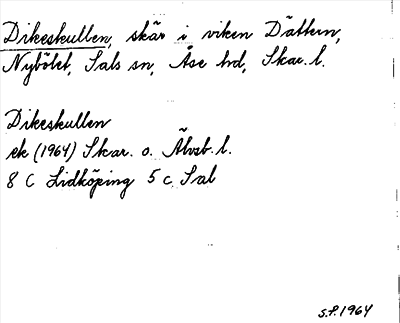 Dikeskullen, skär i viken Dättern,
Nybölet, Sals sn, Åse hd, Skar. l.
Dikeskullen
ek (1964) Skar. o. Älvsb. l.
8 C Lidköping 5 c Sal
S.P. 1964